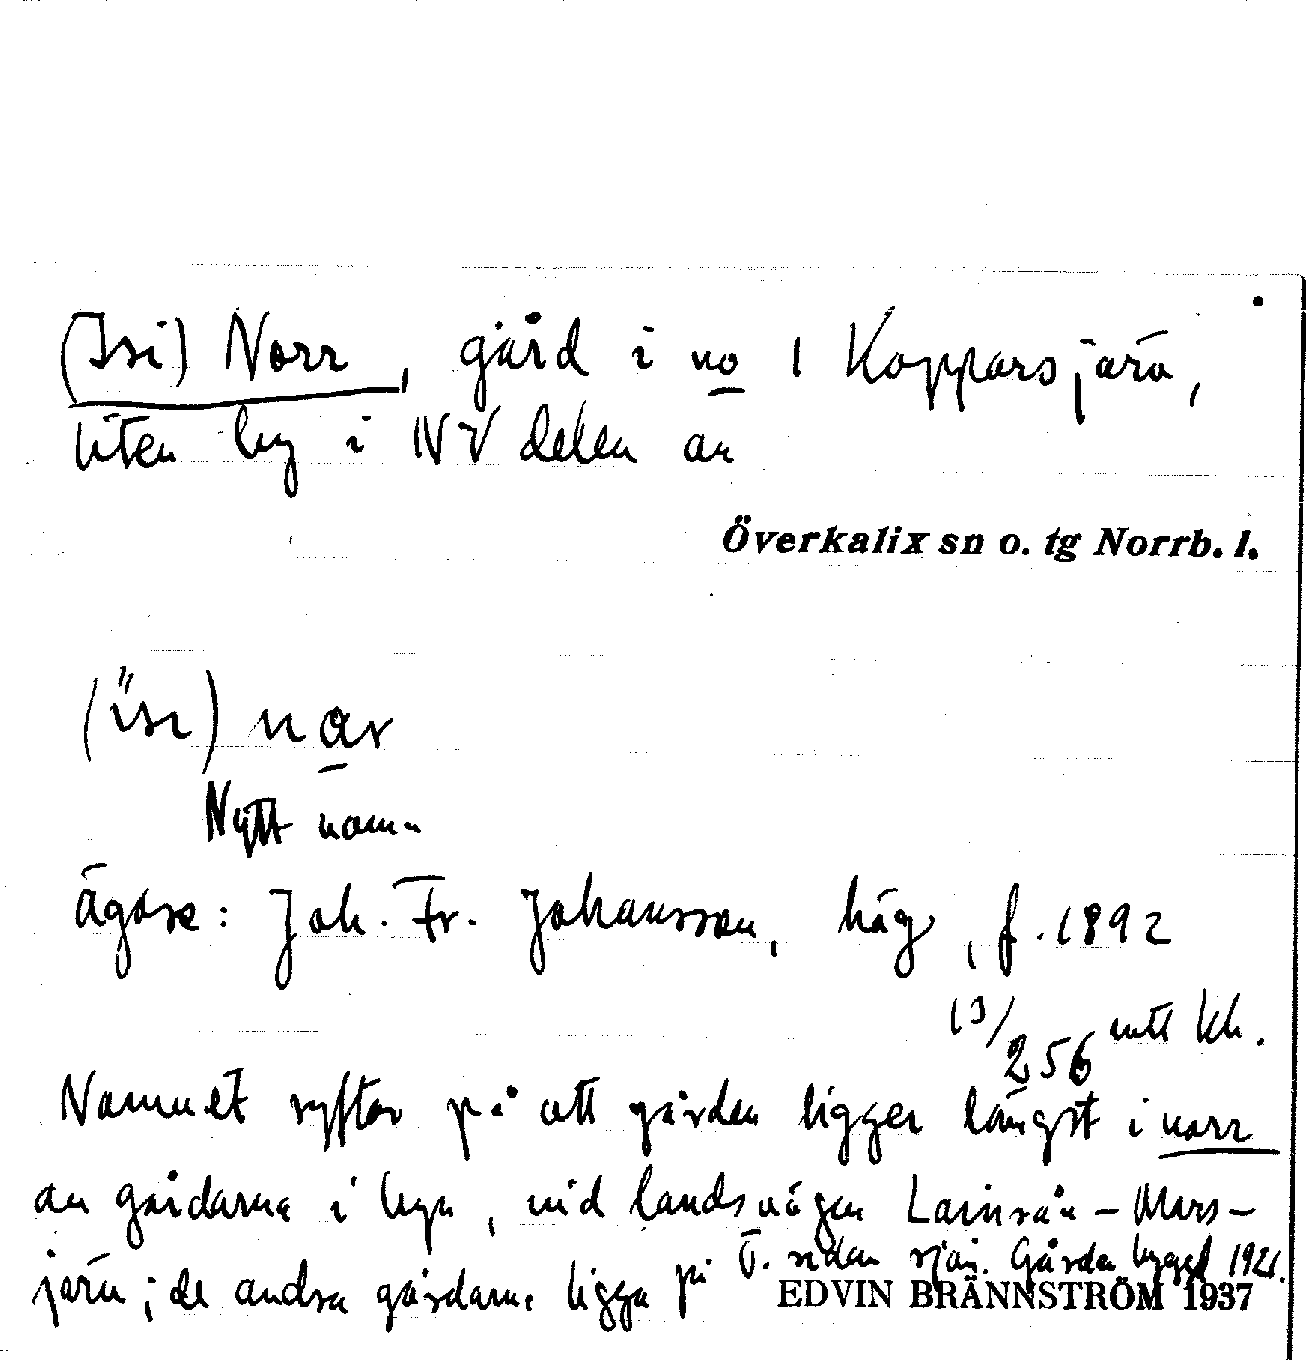 (Isi) Norr, gård i no 1 Kopparsjärv,
liten by i NV delen av
Överkalix sn o. tg Norrb. l.
nar
Nytt namn
ägare: Joh. Fr. Johansson, häg, f. 1892
13/256 mtl kh.
Namnet syftar på att gården ligger längst i norr
av gårdarna i byn, vid landsvägen Lainsån - Mars-
järv; de andra gårdarna ligga på Ö. sidan sjön. Gården byggd 1921.
EDVIN BRÄNNSTRÖM 1937